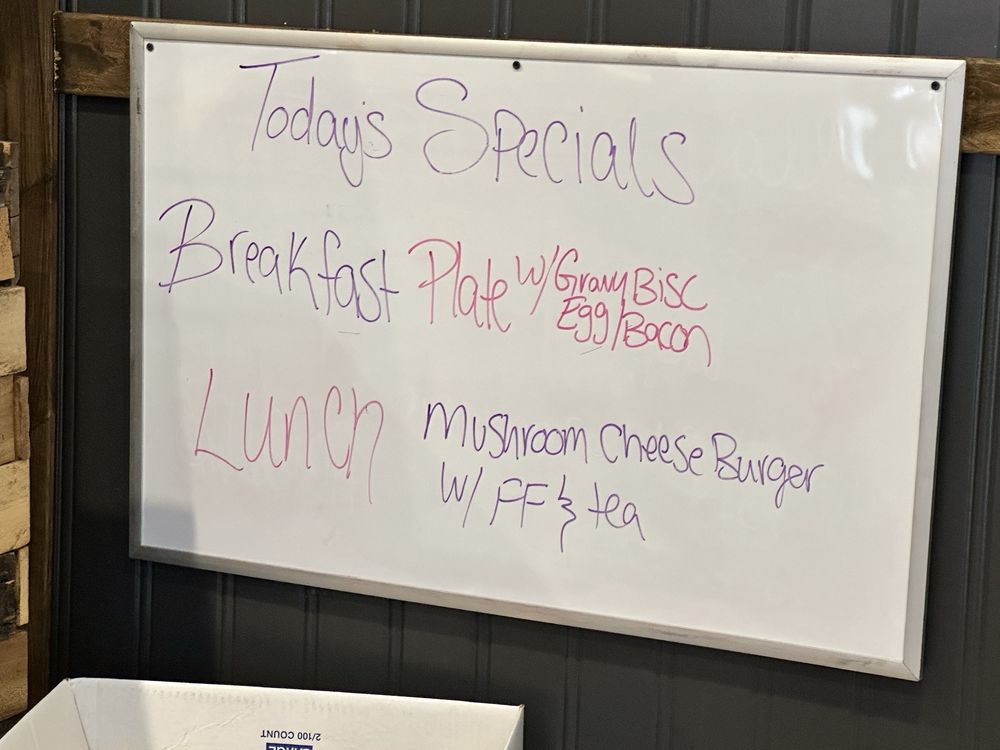 Today's Specials
Breakfast Plate w/ Gravy Bisc
Egg/Bacon
Lunch Mushroom Cheese Burger
W/ FF & tea
2/100 COUNT